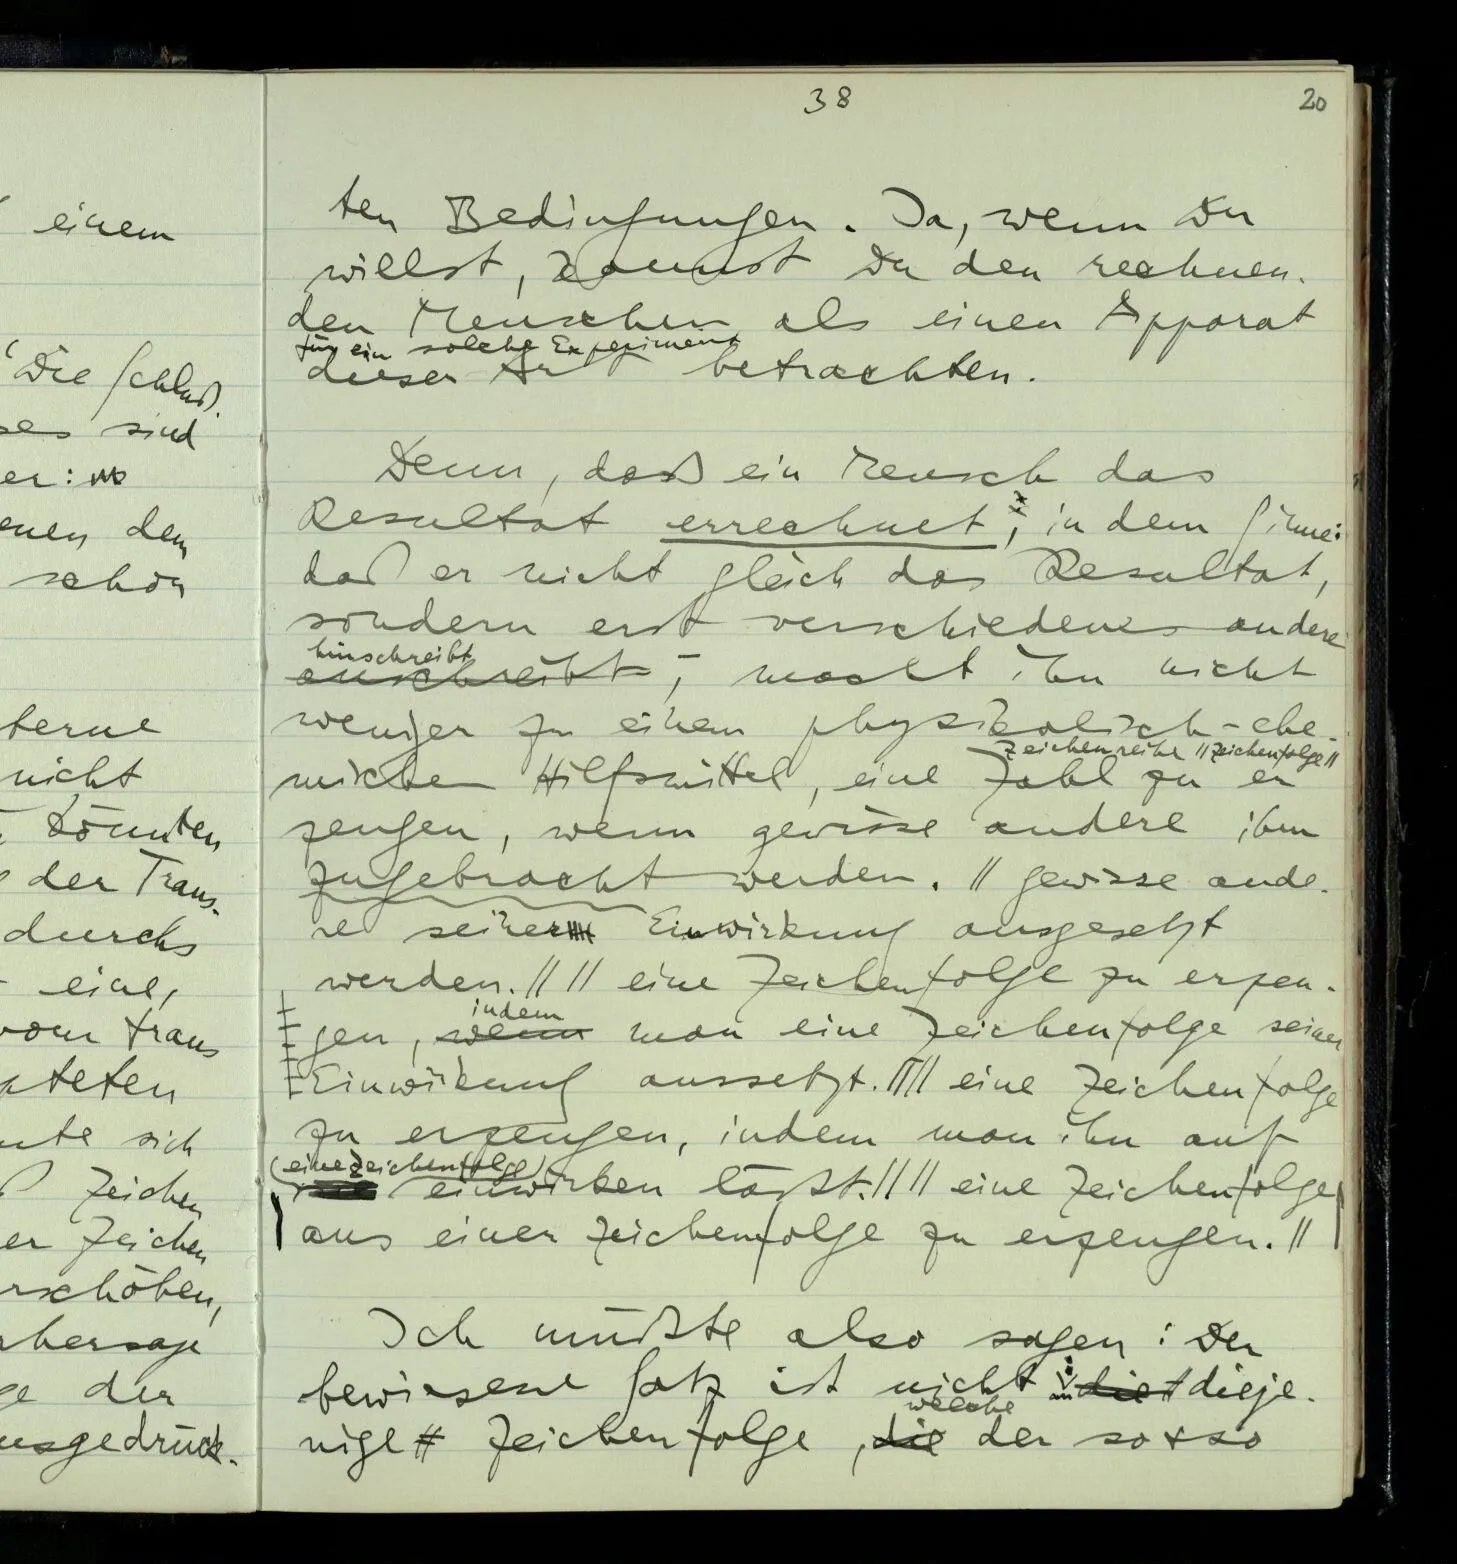 38
20
einem
Die Schluß-
ses sind
er:
enen dem
schon
terne
nicht
könnten
der Trans-
durchs
eine,
vom trans
kteten
nte sich
Zeichen
er Zeichen
rschöben,
rhersage
ge der
usgedrück-
ten Bedingungen. Ja, wenn Du
willst, kannst Du den rechnen-
den Menschen als einen Apparat
für ein solche Experiment
dieser Art betrachten.
Denn, daß ein Mensch das
Resultat errechnet, in dem Sinne:
daß er nicht gleich das Resultat,
sondern erst verschiedenes andere
hinschreibt
anschreibt, – macht ihn nicht
weniger zu einem physikalisch-che-
Zeichenreihe //Zeichenfolge//
mischen Hilfsmittel, eine Zahl zu er
zeugen, wenn gewisse andere ihm
zugebracht werden. // gewisse ande-
re seiner Einwirkung ausgesetzt
werden.// // eine Zeichenfolge zu erzeu-
indem
gen, wenn man eine Zeichenfolge seiner
Einwirkung aussetzt.// // eine Zeichenfolge
zu erzeugen, indem man ihn auf
(eine Zeichenfolge)
einwirken läßt.// // eine Zeichenfolge
aus einer Zeichenfolge zu erzeugen.//
Ich müßte also sagen: Der
bewiesene Satz ist nicht: die dieje-
welche
nige Zeichenfolge, die der so & so